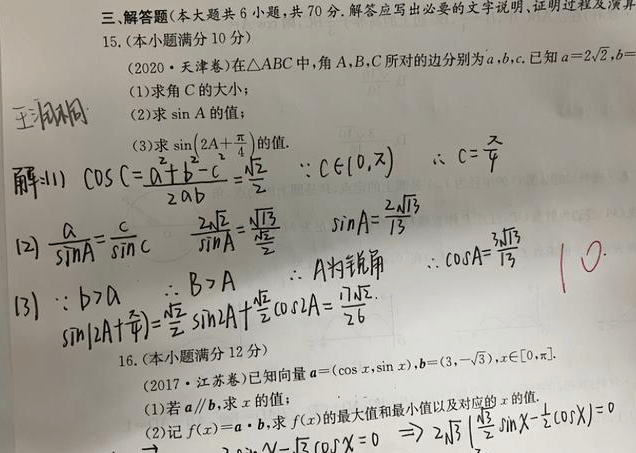 三、解答题(本大题共6小题,共70分.解答应写出必要的文字说明、证明过程及演算
15.(本小题满分10分)
(2020·天津卷)在△ABC中,角A,B,C所对的边分别为a,b,c.已知a=2√2,b=
(1)求角C的大小;
(2)求 sin A 的值;
(3)求 sin(2A+π/4)的值.
解:(1) cosC=(a²+b²-c²)/2ab=√2/2 ∵C∈(0,π) ∴C=π/4
(2) a/sinA=c/sinC 2√2/sinA=√13/(√2/2) sinA=2√13/13
(3) ∵b>a ∴B>A ∴A为锐角 ∴cosA=3√13/13
sin(2A+π/4)=√2/2 sin2A+√2/2 cos2A=17√2/26.
10
16.(本小题满分12分)
(2017·江苏卷)已知向量a=(cos x,sin x),b=(3,-√3),x∈[0,π].
(1)若a∥b,求x的值;
(2)记f(x)=a·b,求f(x)的最大值和最小值以及对应的x的值.
sinx-√3cosx=0 ⇒ 2√3(√3/2 sinx-1/2 cosx)=0